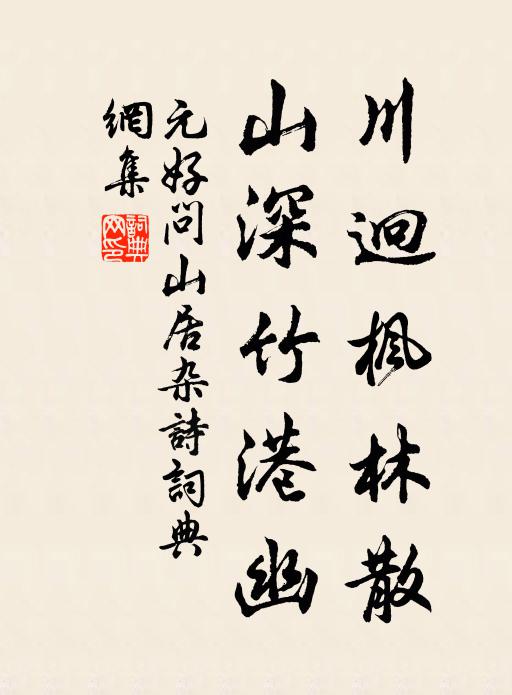 川迥楓林散
山深竹港幽
元好問山居杂詩詞典
網集
詞典
网印